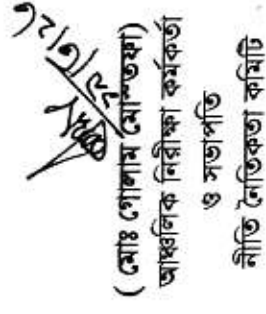 ২৯/৩/২৬
( মোঃ গোলাম মোস্তফা)
আঞ্চলিক নিরীক্ষা কর্মকর্তা
ও সভাপতি
নীতি নৈতিকতা কমিটি